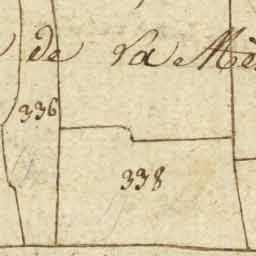 de la Mè
336
338